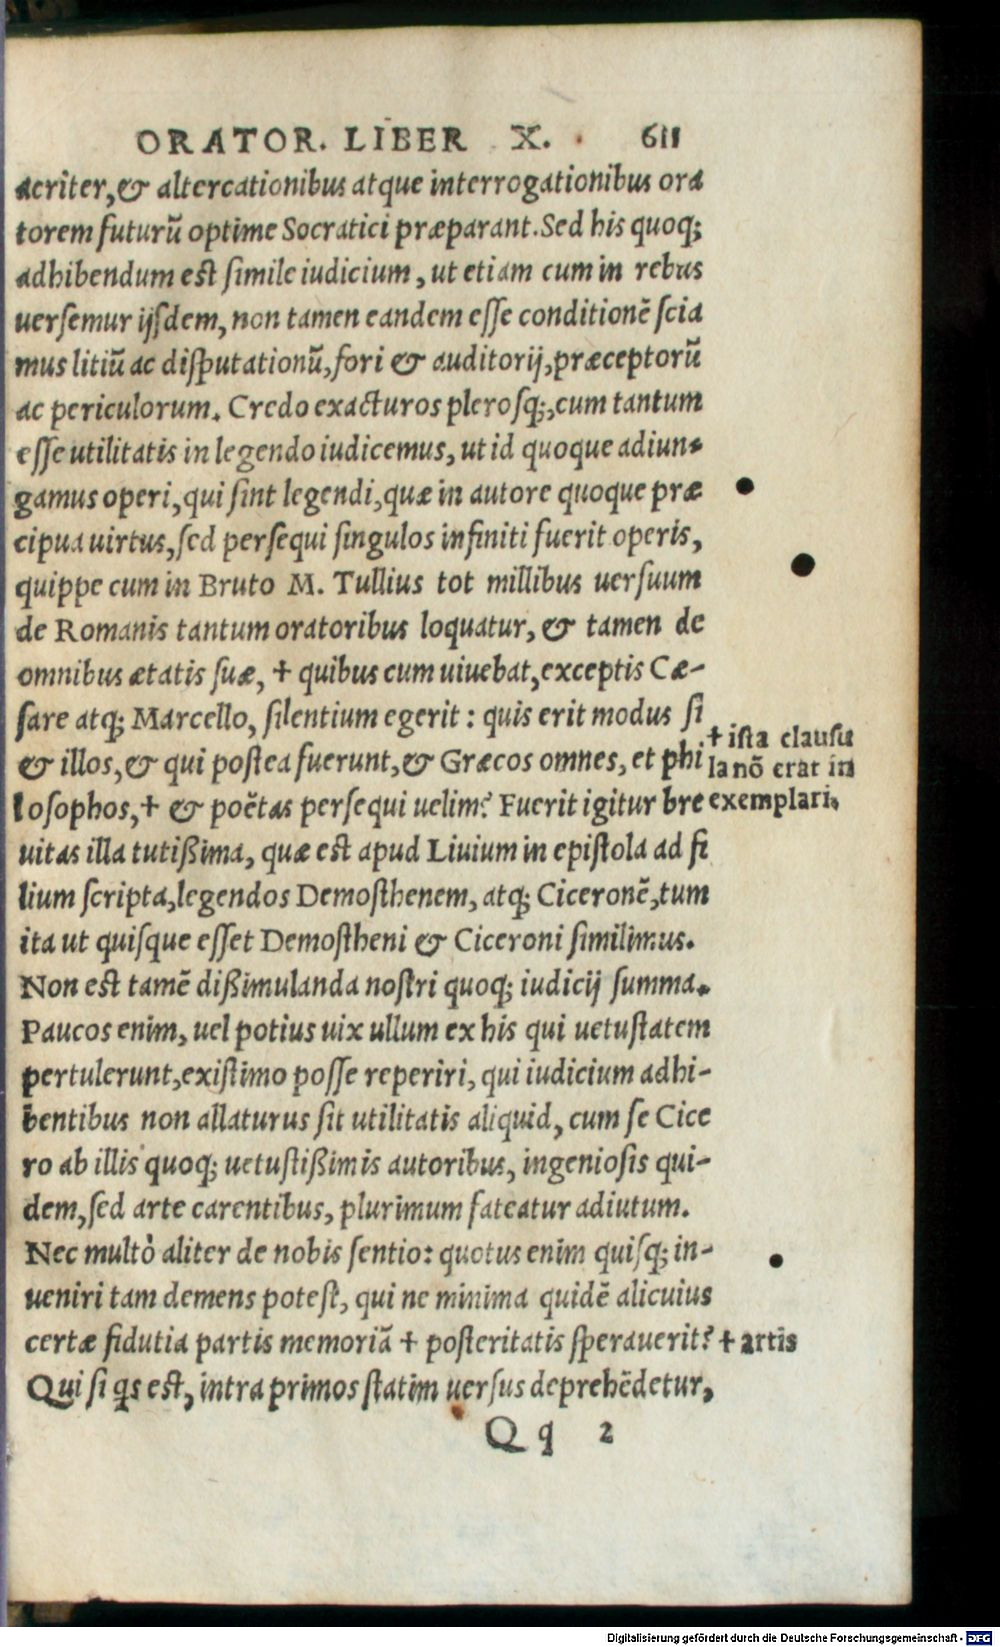 ORATOR. LIBER X. 611
acriter,& altercationibus atque interrogationibus ora
torem futurũ optime Socratici præparant.Sed his quoq;
adhibendum est simile iudicium, ut etiam cum in rebus
uersemur ijsdem, non tamen eandem esse conditionẽ scia
mus litiũ ac disputationũ, fori & auditorij, præceptorũ
ac periculorum. Credo exacturos plerosq;, cum tantum
esse utilitatis in legendo iudicemus, ut id quoque adiun-
gamus operi, qui sint legendi, quæ in autore quoque præ
cipua uirtus, sed persequi singulos infiniti fuerit operis,
quippe cum in Bruto M. Tullius tot millibus uersuum
de Romanis tantum oratoribus loquatur, & tamen de
omnibus ætatis suæ, + quibus cum uiuebat, exceptis Cæ-
sare atq; Marcello, silentium egerit: quis erit modus si
& illos, & qui postea fuerunt, & Græcos omnes, et phi
losophos, + & poëtas persequi uelim? Fuerit igitur bre
uitas illa tutißima, quæ est apud Liuium in epistola ad fi
lium scripta, legendos Demosthenem, atq; Ciceronẽ, tum
ita ut quisque esset Demostheni & Ciceroni similimus.
Non est tamẽ dißimulanda nostri quoq; iudicij summa.
Paucos enim, uel potius uix ullum ex his qui uetustatem
pertulerunt, existimo posse reperiri, qui iudicium adhi-
bentibus non allaturus sit utilitatis aliquid, cum se Cice
ro ab illis quoq; uetustißimis autoribus, ingeniosis qui-
dem, sed arte carentibus, plurimum fateatur adiutum.
Nec multò aliter de nobis sentio: quotus enim quisq; in-
ueniri tam demens potest, qui ne minima quidẽ alicuius
certæ fidutia partis memoriã + posteritatis sperauerit?
Qui si qs est, intra primos statim uersus deprehẽdetur,
Qq 2
+ ista clausu
la nõ erat in
exemplari.
+ artis
Digitalisierung gefördert durch die Deutsche Forschungsgemeinschaft - DFG